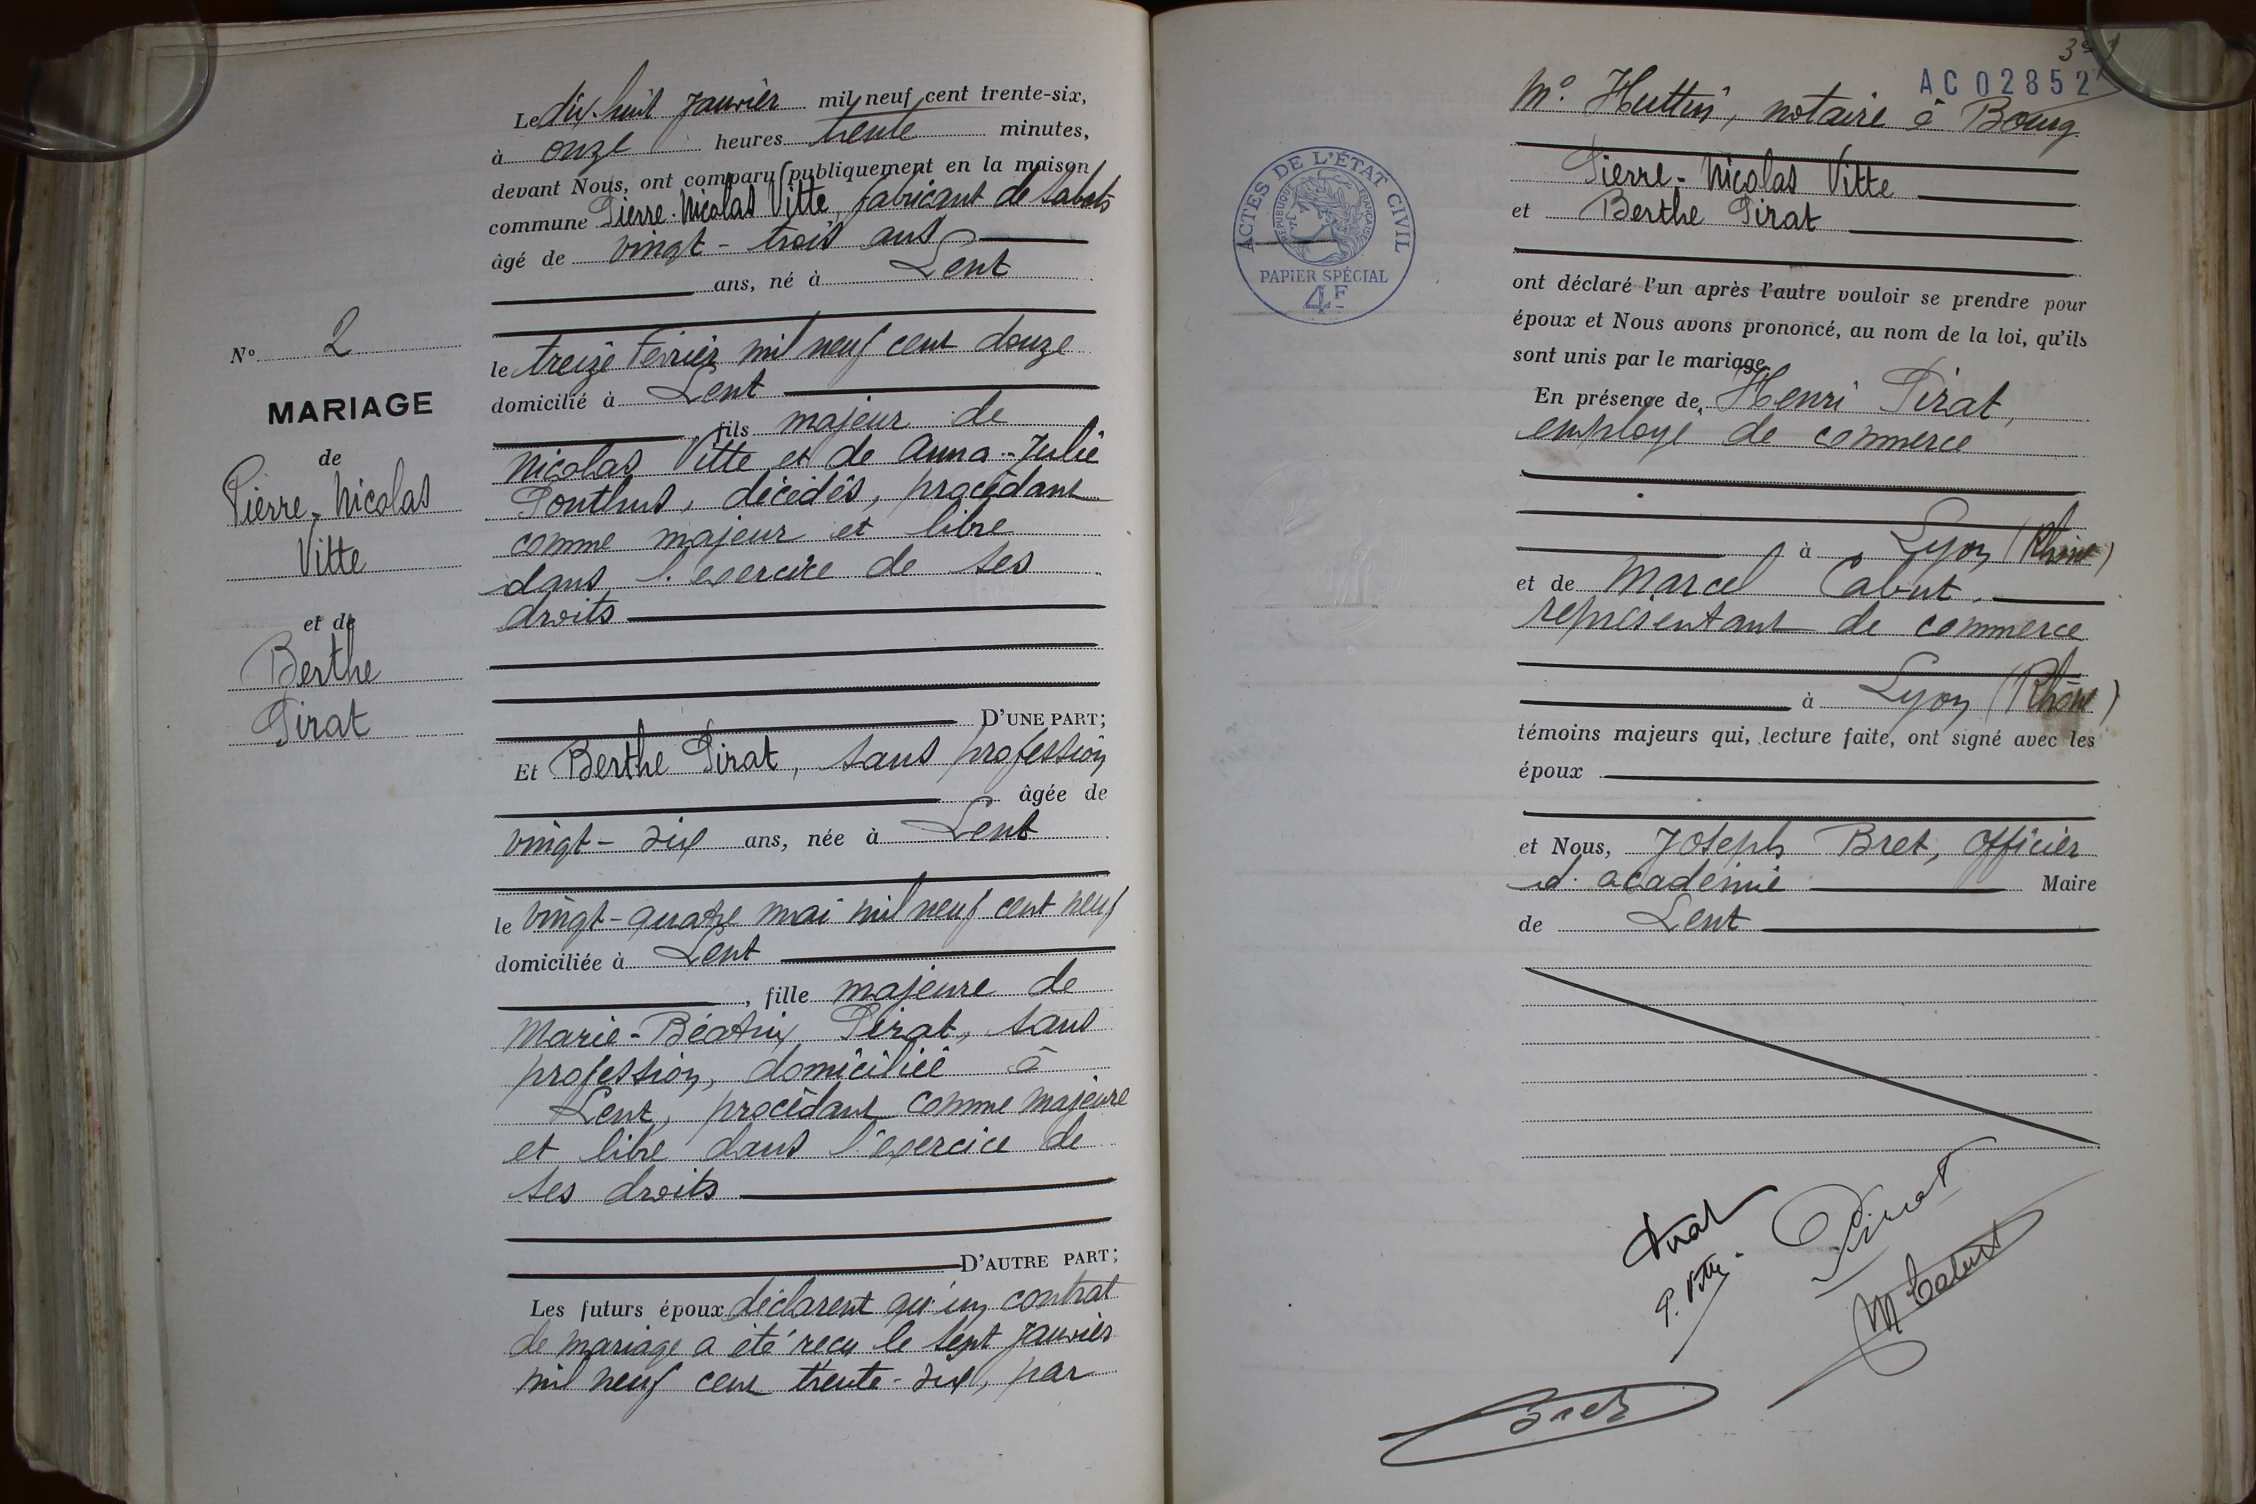 N° 2
MARIAGE
de
Pierre-Nicolas
Vitte
et de
Berthe
Pirat
Le dix-huit Janvier mil neuf cent trente-six,
à onze heures trente minutes,
devant Nous, ont comparu publiquement en la maison
commune Pierre-Nicolas Vitte, fabricant de sabots
âgé de vingt-trois ans
ans, né à Lent
le treize Février mil neuf cent douze
domicilié à Lent
fils majeur de
Nicolas Vitte et de Anna-Julie
Ponthus, décédés, procédant
comme majeur et libre
dans l'exercice de ses
droits
D'UNE PART;
Et Berthe Pirat, sans profession
âgée de
vingt-six ans, née à Lent
le vingt-quatre mai mil neuf cent neuf
domiciliée à Lent
, fille majeure de
Marie-Béatrix Pirat, sans
profession, domiciliée à
Lent, procédant comme majeure
et libre dans l'exercice de
ses droits
D'AUTRE PART;
Les futurs époux déclarent qu'un contrat
de mariage a été reçu le sept Janvier
mil neuf cent trente-six, par
AC 02852
Me. Huttin, notaire à Bourg
ACTES DE L'ÉTAT CIVIL
RÉPUBLIQUE FRANÇAISE
PAPIER SPÉCIAL
4F
Pierre-Nicolas Vitte
et Berthe Pirat
ont déclaré l'un après l'autre vouloir se prendre pour
époux et Nous avons prononcé, au nom de la loi, qu'ils
sont unis par le mariage.
En présence de Henri Pirat,
employé de commerce
à Lyon (Rhône)
et de Marcel Cabut,
représentant de commerce
à Lyon (Rhône)
témoins majeurs qui, lecture faite, ont signé avec les
époux
et Nous, Joseph Bret, Officier
d'académie Maire
de Lent
Pirat
Pirat
P. Vitte
M Cabut
Bret